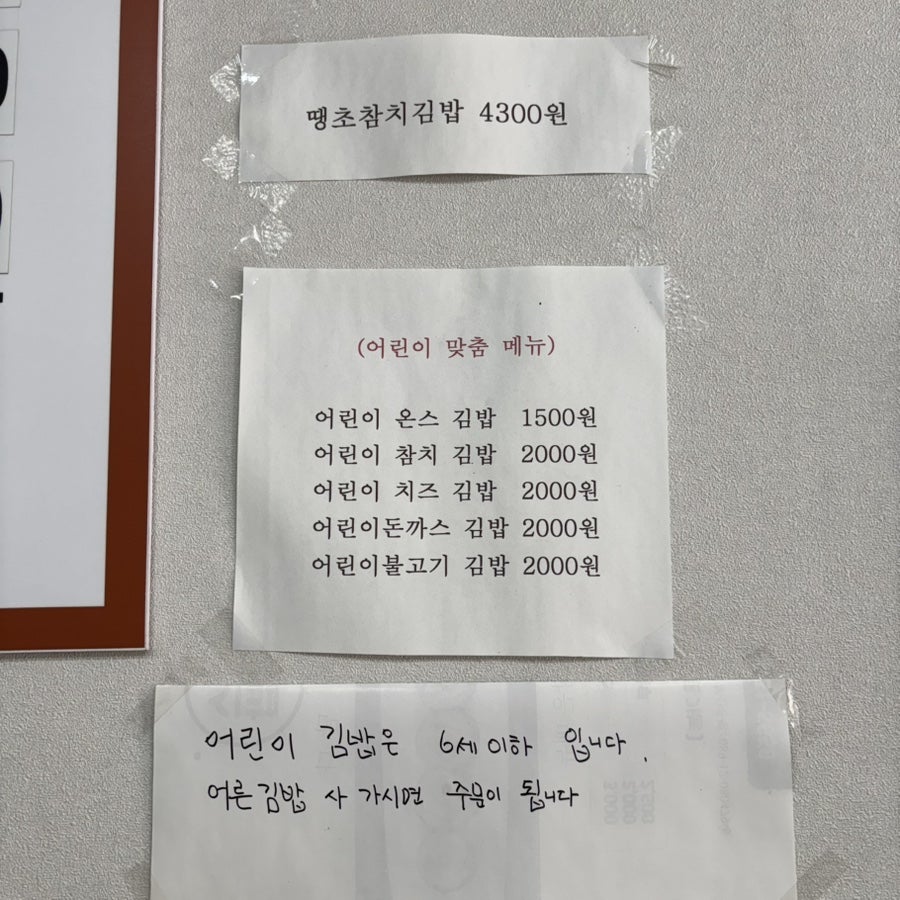 땡초참치김밥 4300원
(어린이 맞춤 메뉴)
어린이 온스 김밥 1500원
어린이 참치 김밥 2000원
어린이 치즈 김밥 2000원
어린이돈까스 김밥 2000원
어린이불고기 김밥 2000원
어린이 김밥은 6세이하 입니다.
어른김밥 사 가시면 주문이 됩니다